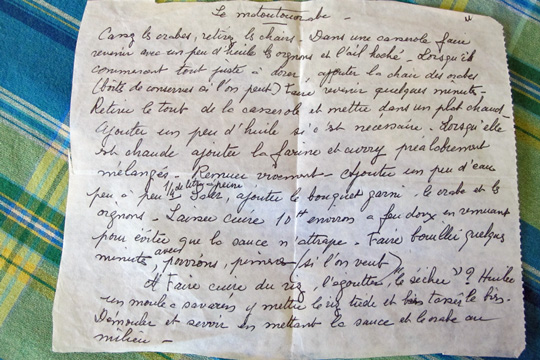 Le matoutoucrabe -
Cassez les crabes, retirez les chairs Dans une casserole faire
revenir avec un peu d'huile les oignons et l'ail haché - Lorsqu'ils
commencent tout juste à dorer, ajouter la chair des crabes
(boîte de conserves si l'on peut) Faire revenir quelques minutes -
Retirer le tout de la casserole et mettre dans un plat chaud -
Ajouter un peu d'huile si c'est nécessaire - Lorsqu'elle
est chaude ajouter la farine et curry préalablement
mélangés - Remuer vivement - Ajouter un peu d'eau
peu à peu 1/4 de litre à peine Saler, ajouter le bouquet garni - le crabe et les
oignons - Laisser cuire 10 environ à feu doux en remuant
pour éviter que la sauce n'attrape - Faire bouillir quelques
minutes avec poivrons, piments (si l'on veut)
Faire cuire du riz, l'égoutter, "le sécher" ? Huiler
un moule à savarin y mettre le riz tiède et tasser le bien.
Démouler et servir en mettant la sauce et le crabe au
milieu -